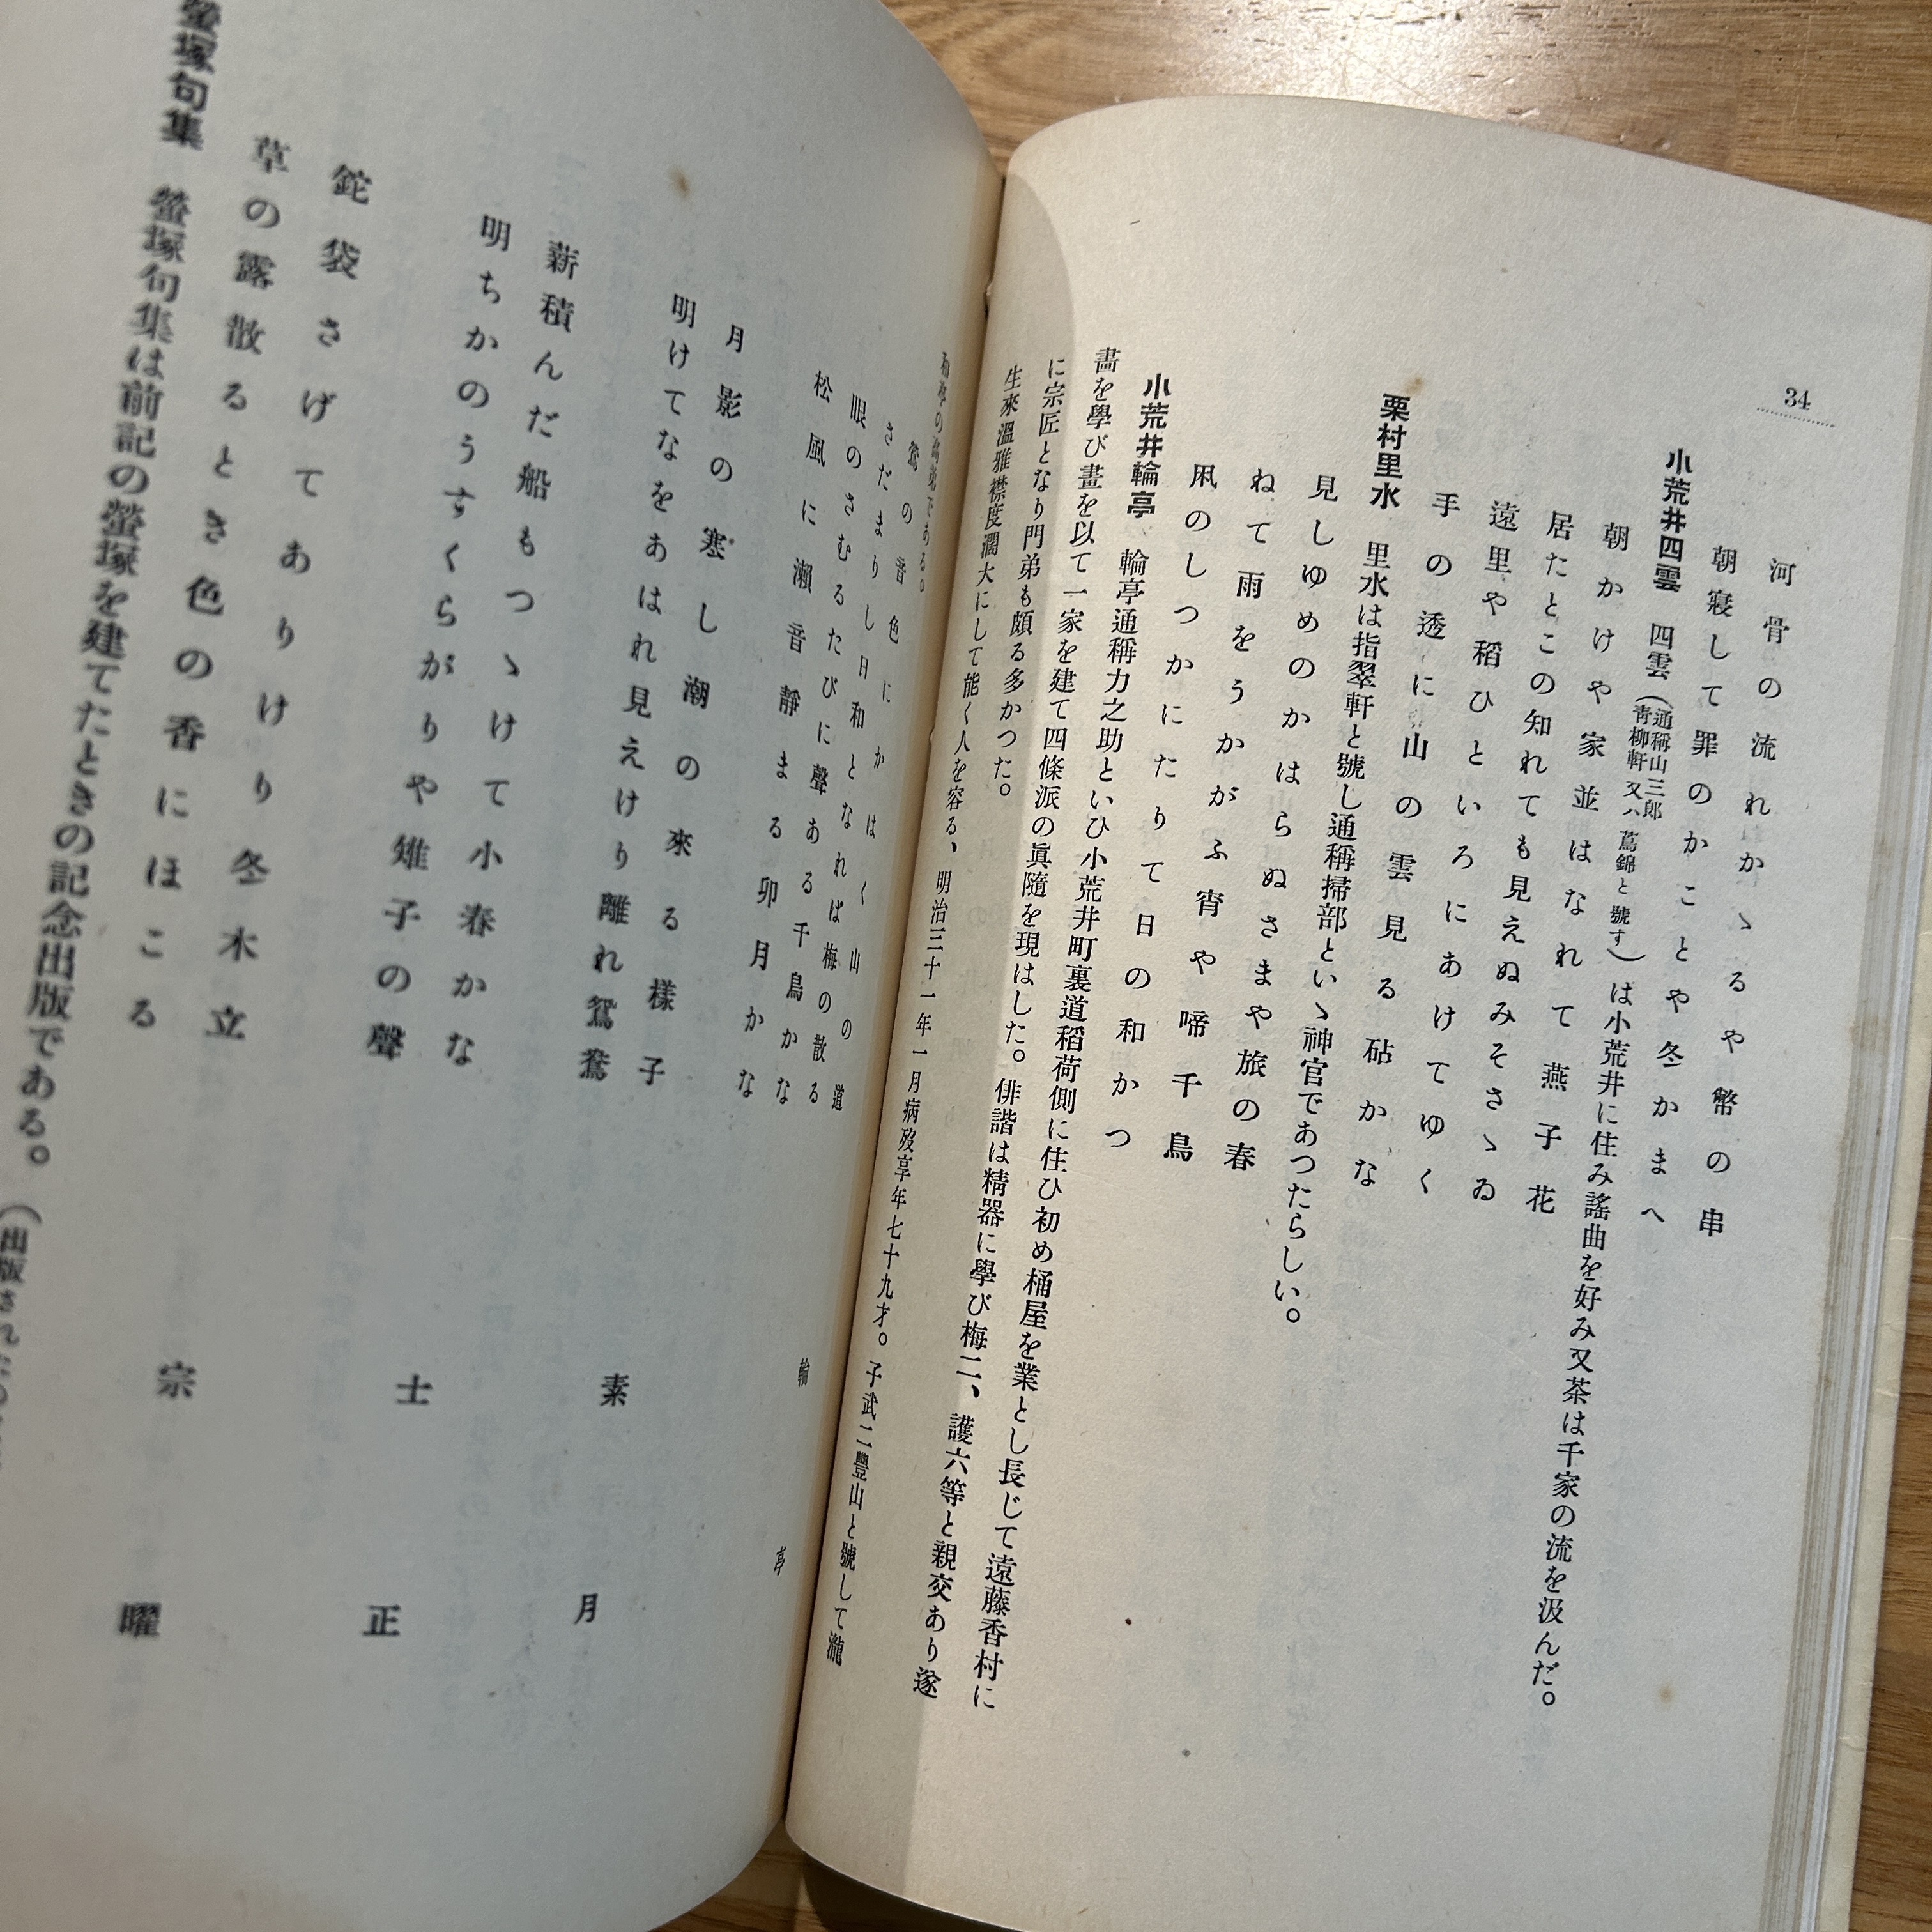 34
河骨の流れかゝるや幣の串
朝寢して罪のかことや冬かまへ
小荒井四雲 四雲(通稱山三郎青柳軒又ハ蔦錦と號す)は小荒井に住み謠曲を好み又茶は千家の流を汲んだ。
朝かけや家並はなれて燕子花
居たとこの知れても見えぬみそさゝゐ
遠里や稻ひといろにあけてゆく
手の透に山の雲見る砧かな
栗村里水 里水は指翠軒と號し通稱掃部といゝ神官であつたらしい。
見しゆめのかはらぬさまや旅の春
ねて雨をうかがふ宵や啼千鳥
凩のしつかにたりて日の和かつ
小荒井輪亭 輪亭通稱力之助といひ小荒井町裏道稻荷側に住ひ初め桶屋を業とし長じて遠藤香村に
畵を學び畫を以て一家を建て四條派の眞隨を現はした。俳諧は精器に學び梅二、護六等と親交あり遂
に宗匠となり門弟も頗る多かつた。
生來溫雅襟度濶大にして能く人を容る、明治三十一年一月病歿享年七十九才。子武二豐山と號して瀧
和亭の高弟である。
鶯の音色にかはく山の道
さだまりし日和となれば梅の散る
眼のさむるたびに聲ある千鳥かな
松風に瀨音靜まる卯月かな
輪亭
月影の寒し潮の來る樣子
明けてなをあはれ見えけり離れ鴛鴦
素月
薪積んだ船もつゝけて小春かな
明ちかのうすくらがりや雉子の聲
士正
鉈袋さげてありけり冬木立
草の露散るとき色の香にほこる
宗曜
螢塚句集 螢塚句集は前記の螢塚を建てたときの記念出版である。(出版された